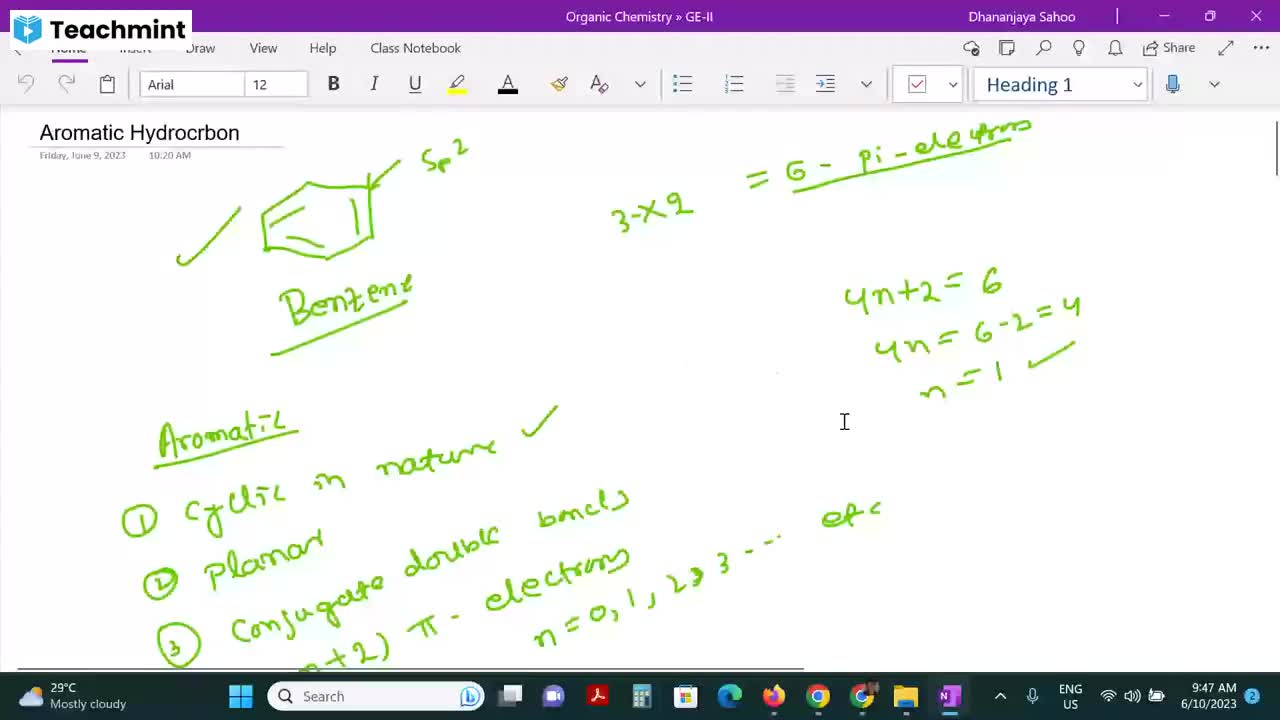 Organic Chemistry » GE-II
Dhananjaya Sahoo
Teachmint
Home Insert Draw View Help Class Notebook
Share
Arial 12 B I U A Heading 1
Aromatic Hydrocrbon
Friday, June 9, 2023 10:20 AM
Sp²
3 × 2 = 6 - pi - electrons
Benzene
4n+2 = 6
4n = 6 - 2 = 4
n = 1
Aromatic
① Cyclic in nature
② Planar
③ Conjugate double bonds
n+2) π - electrons
n = 0, 1, 2, 3 - - - etc
29°C
Mostly cloudy
Search
ENG
US
9:47 AM
6/10/2023
2